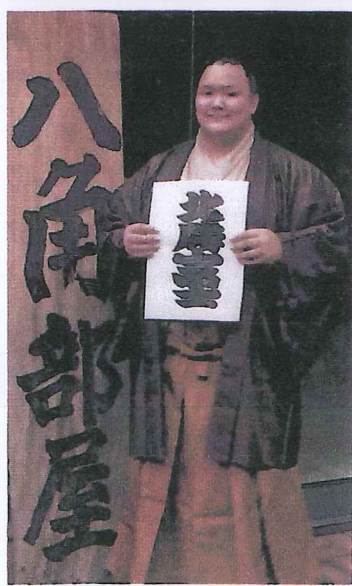 八角部屋
北勝富士